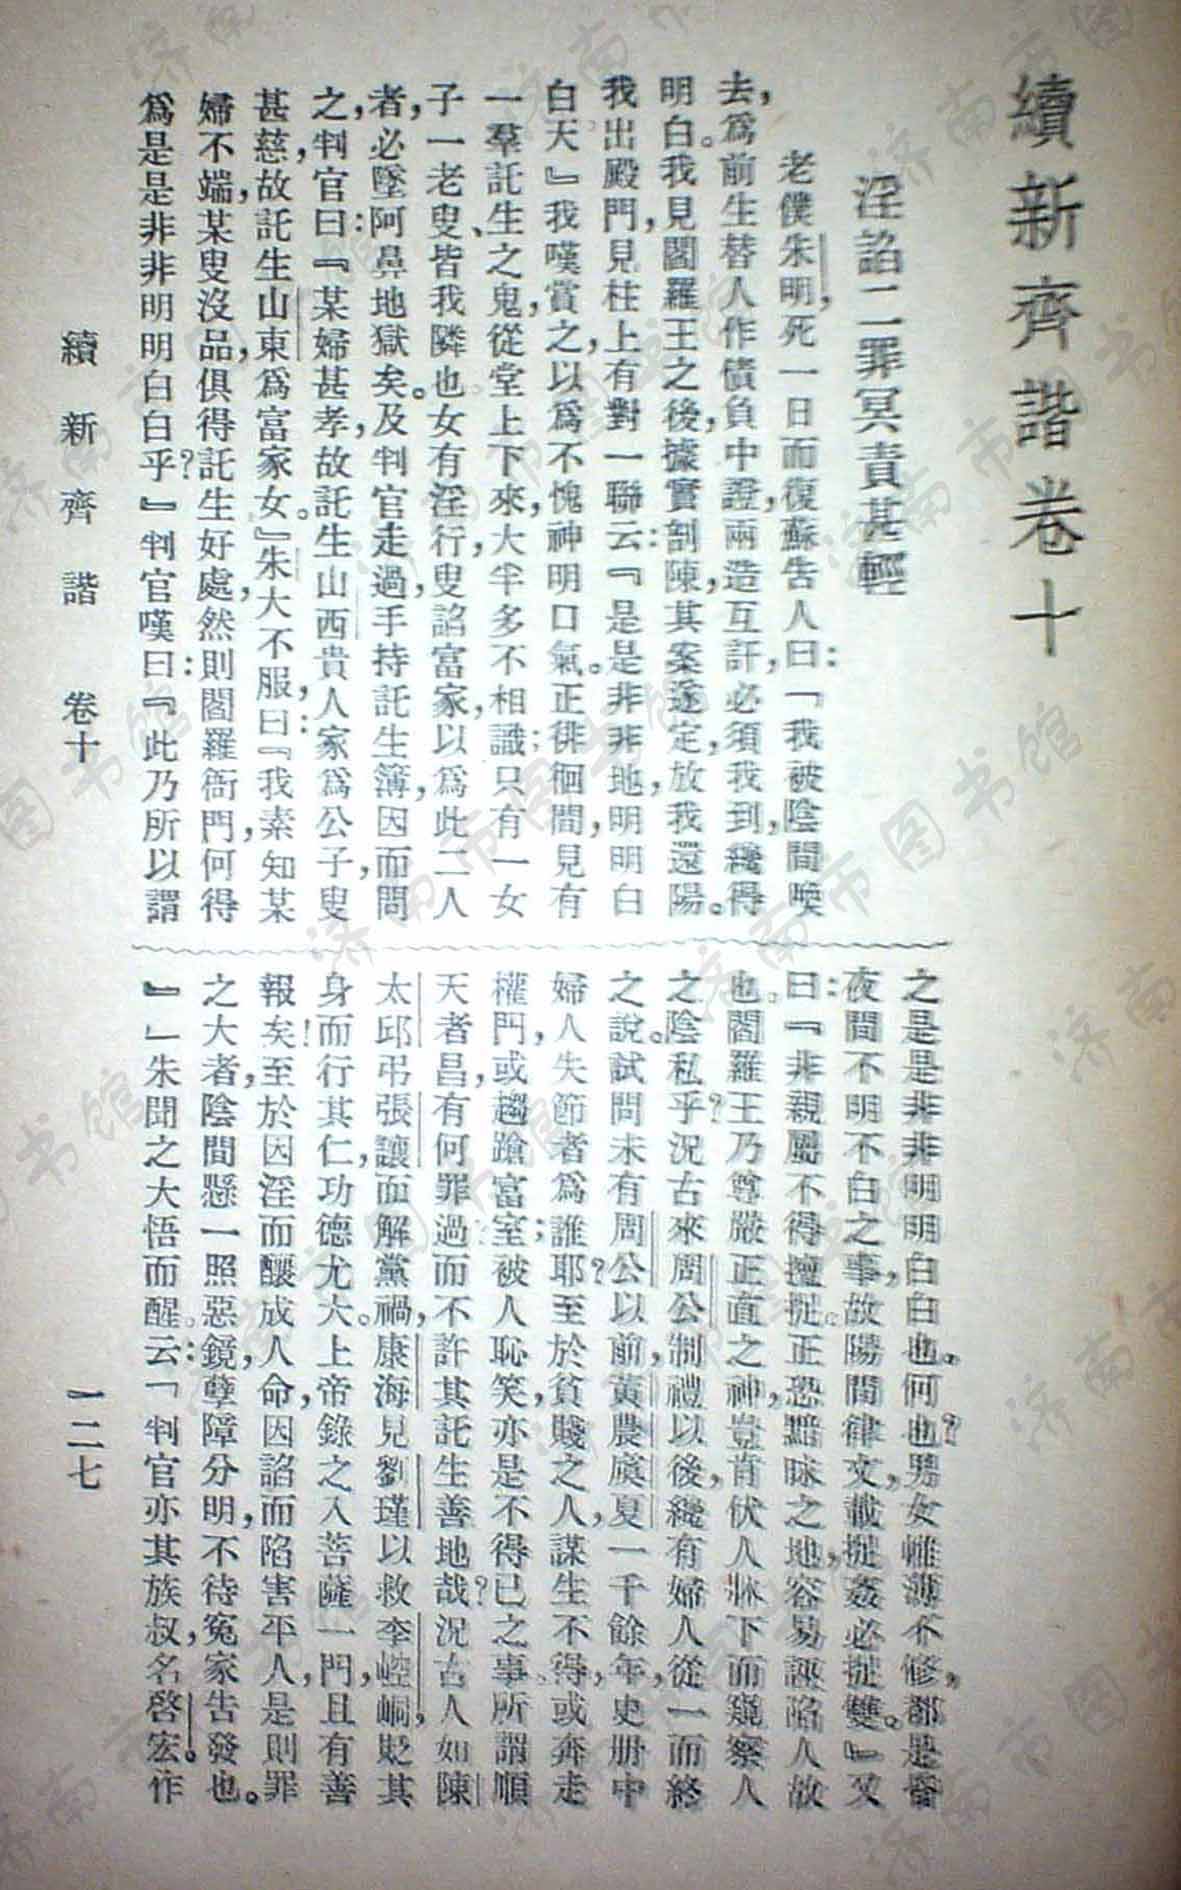 續新齊諧卷十
淫諂二罪冥責甚輕
老僕朱明，死一日而復蘇，告人曰：「我被陰間喚
去，為前生替人作債負中證，兩造互訐，必須我到，纔得
明白。我見閻羅王之後，據實剖陳，其案遂定，放我還陽。
我出殿門，見柱上有對一聯云：『是是非非地，明明白
白天』我嘆賞之，以為不愧神明口氣。正徘徊間，見有
一羣託生之鬼，從堂上下來，大半多不相識；只有一女
子一老叟、皆我隣也。女有淫行，叟諂富家，以為此二人
者，必墜阿鼻地獄矣。及判官走過，手持託生簿，因而問
之，判官曰：『某婦甚孝，故託生山西貴人家為公子，叟
甚慈，故託生山東為富家女。』朱大不服，曰：『我素知某
婦不端，某叟沒品，俱得託生好處，然則閻羅衙門，何得
為是是非非明明白白乎？』判官嘆曰：『此乃所以謂
之是是非非明明白白也。何也？男女帷薄不修，都是昏
夜間不明不白之事，故陽間律文，載捉姦必捉雙。』又
曰：『非親屬不得擅捉。正恐黯昧之地，容易誣陷人故
也。閻羅王乃尊嚴正直之神，豈肯伏人牀下而窺察人
之陰私乎？況古來周公制禮以後，纔有婦人從一而終
之說。試問未有周公以前，黃農虞夏一千餘年，史册中
婦人失節者為誰耶？至於貧賤之人，謀生不得，或奔走
權門，或趨蹌富室；被人恥笑，亦是不得已之事所謂順
天者昌，有何罪過而不許其託生善地哉？況古人如陳
太邱弔張讓而解黨禍，康海見劉瑾以救李崆峒，貶其
身而行其仁，功德尤大。上帝錄之入菩薩一門，且有善
報矣！至於因淫而釀成人命，因諂而陷害平人，是則罪
之大者，陰間懸一照惡鏡，孽障分明，不待冤家告發也。
』」朱聞之大悟而醒。云：「判官亦其族叔，名啓宏。作
續新齊諧 卷十 一二七
濟南市图书馆